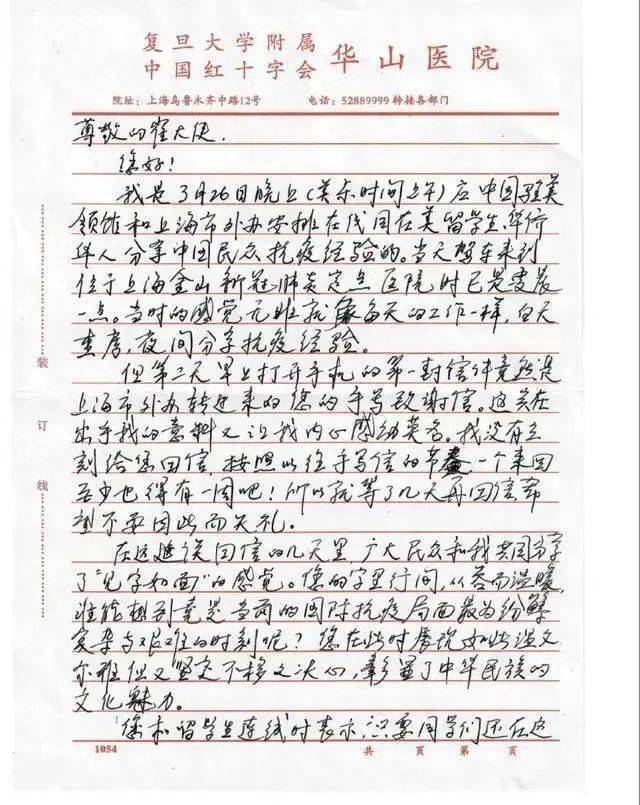 复旦大学附属
中国红十字会
华山医院
院址：上海乌鲁木齐中路12号 电话：52889999 转接各部门
尊敬的崔大使.
您好！
我是3月26日晚上(美东时间上午)应中国驻美
领馆和上海市外办安排在线同在美留学生、华侨
华人分享中国民众抗疫经验的。当天驾车来到
位于上海金山新冠肺炎定点医院时已是凌晨
一点。当时的感觉无非就像每天的工作一样,白天
查房,夜间分享抗疫经验。
但第二天早上打开手机的第一封信件竟然是
上海市外办转过来的您的手写致谢信。这实在
出乎我的意料又让我内心感动莫名。我没有立
刻给您回信,按照以往手写信的节奏一个来回
至少也得有一周吧！所以就等了几天再回信,希
望不要因此而失礼。
在这耽误回信的几天里,广大民众和我共同分享
了"见字如面"的感觉。您的字里行间,从容而温暖,
谁能想到竟是当前的国际抗疫局面最为纷繁
复杂与艰难的时刻呢？您在此时展现如此温文
尔雅但又坚定不移之决心,彰显了中华民族的
文化魅力。
您和留学生连线时表示,只要同学们还在这
装
订
线
1054 共 页 第 页